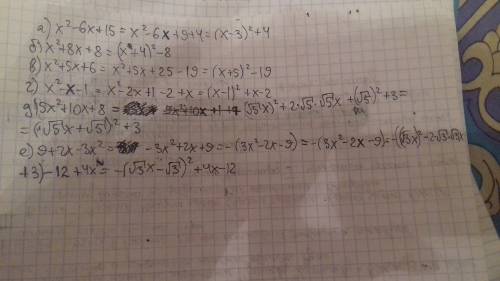 а) x²-6x+15 = x²-6x+9+4 = (x-3)²+4
б) x²+8x+8 = (x+4)²-8
в) x²+5x+6 = x²+5x+25-19 = (x+5)²-19
г) x²-x-1 = x²-2x+1-2+x = (x-1)²+x-2
д) 5x²+10x+8 = (√5x)²+2·√5·√5x+(√5)²+3 =
= (√5x+√5)²+3
е) 9+2x-3x² = -3x²+2x+9 = -(3x²-2x-9) = -(3x²-2x-9) = -((√3x)²-2·√3·√3x
+3)-12+4x = -(√3x-√3)²+4x-12